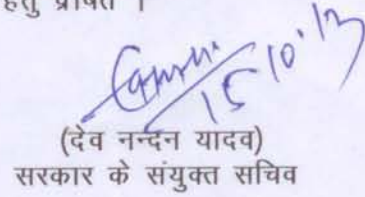 हेतु प्रेषित ।
15/10/13
(देव नन्दन यादव)
सरकार के संयुक्त सचिव